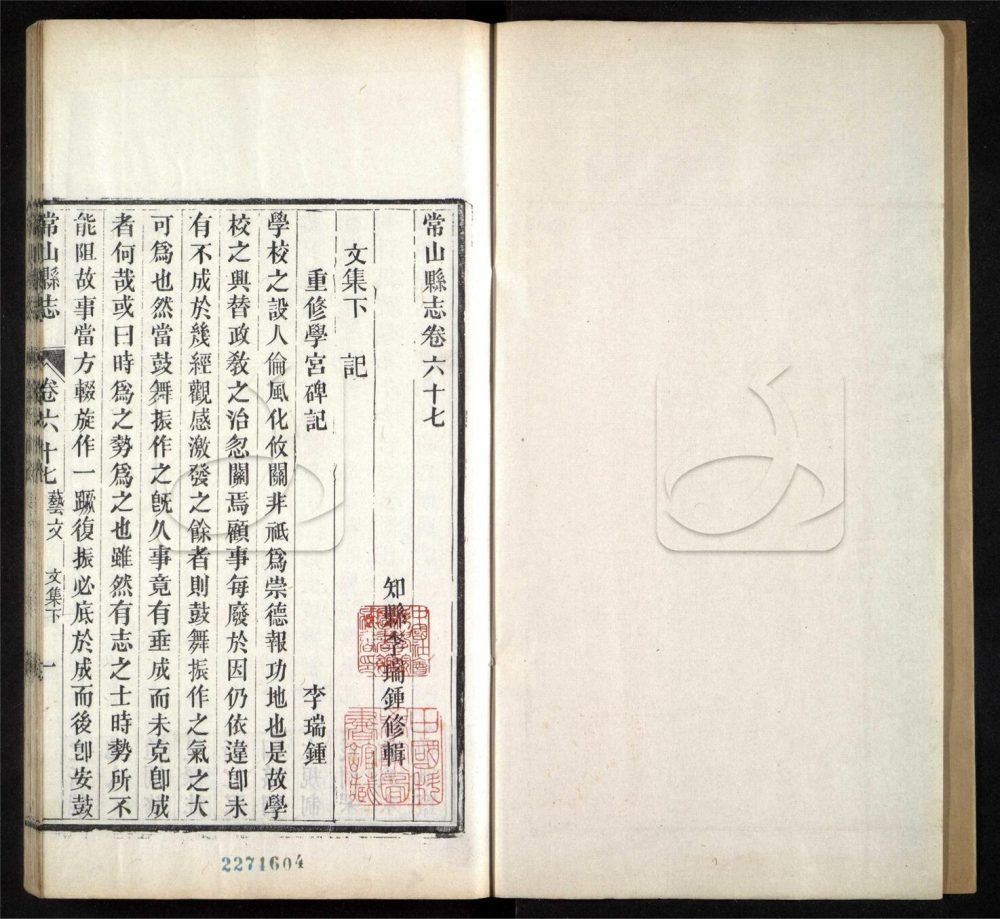 常山縣志卷六十七
知縣李瑞鍾修輯
文集下　記
重修學宮碑記　李瑞鍾
學校之設人倫風化攸關非祇爲崇德報功地也是故學
校之興替政敎之治忽關焉顧事每廢於因仍依違卽未
有不成於幾經觀感激發之餘者則鼓舞振作之氣之大
可爲也然當鼓舞振作之旣久事竟有垂成而未克卽成
者何哉或曰時爲之勢爲之也雖然有志之士時勢所不
能阻故事當方輟旋作一蹶復振必底於成而後卽安鼓
常山縣志　卷六十七　藝文　文集下　一
2271604